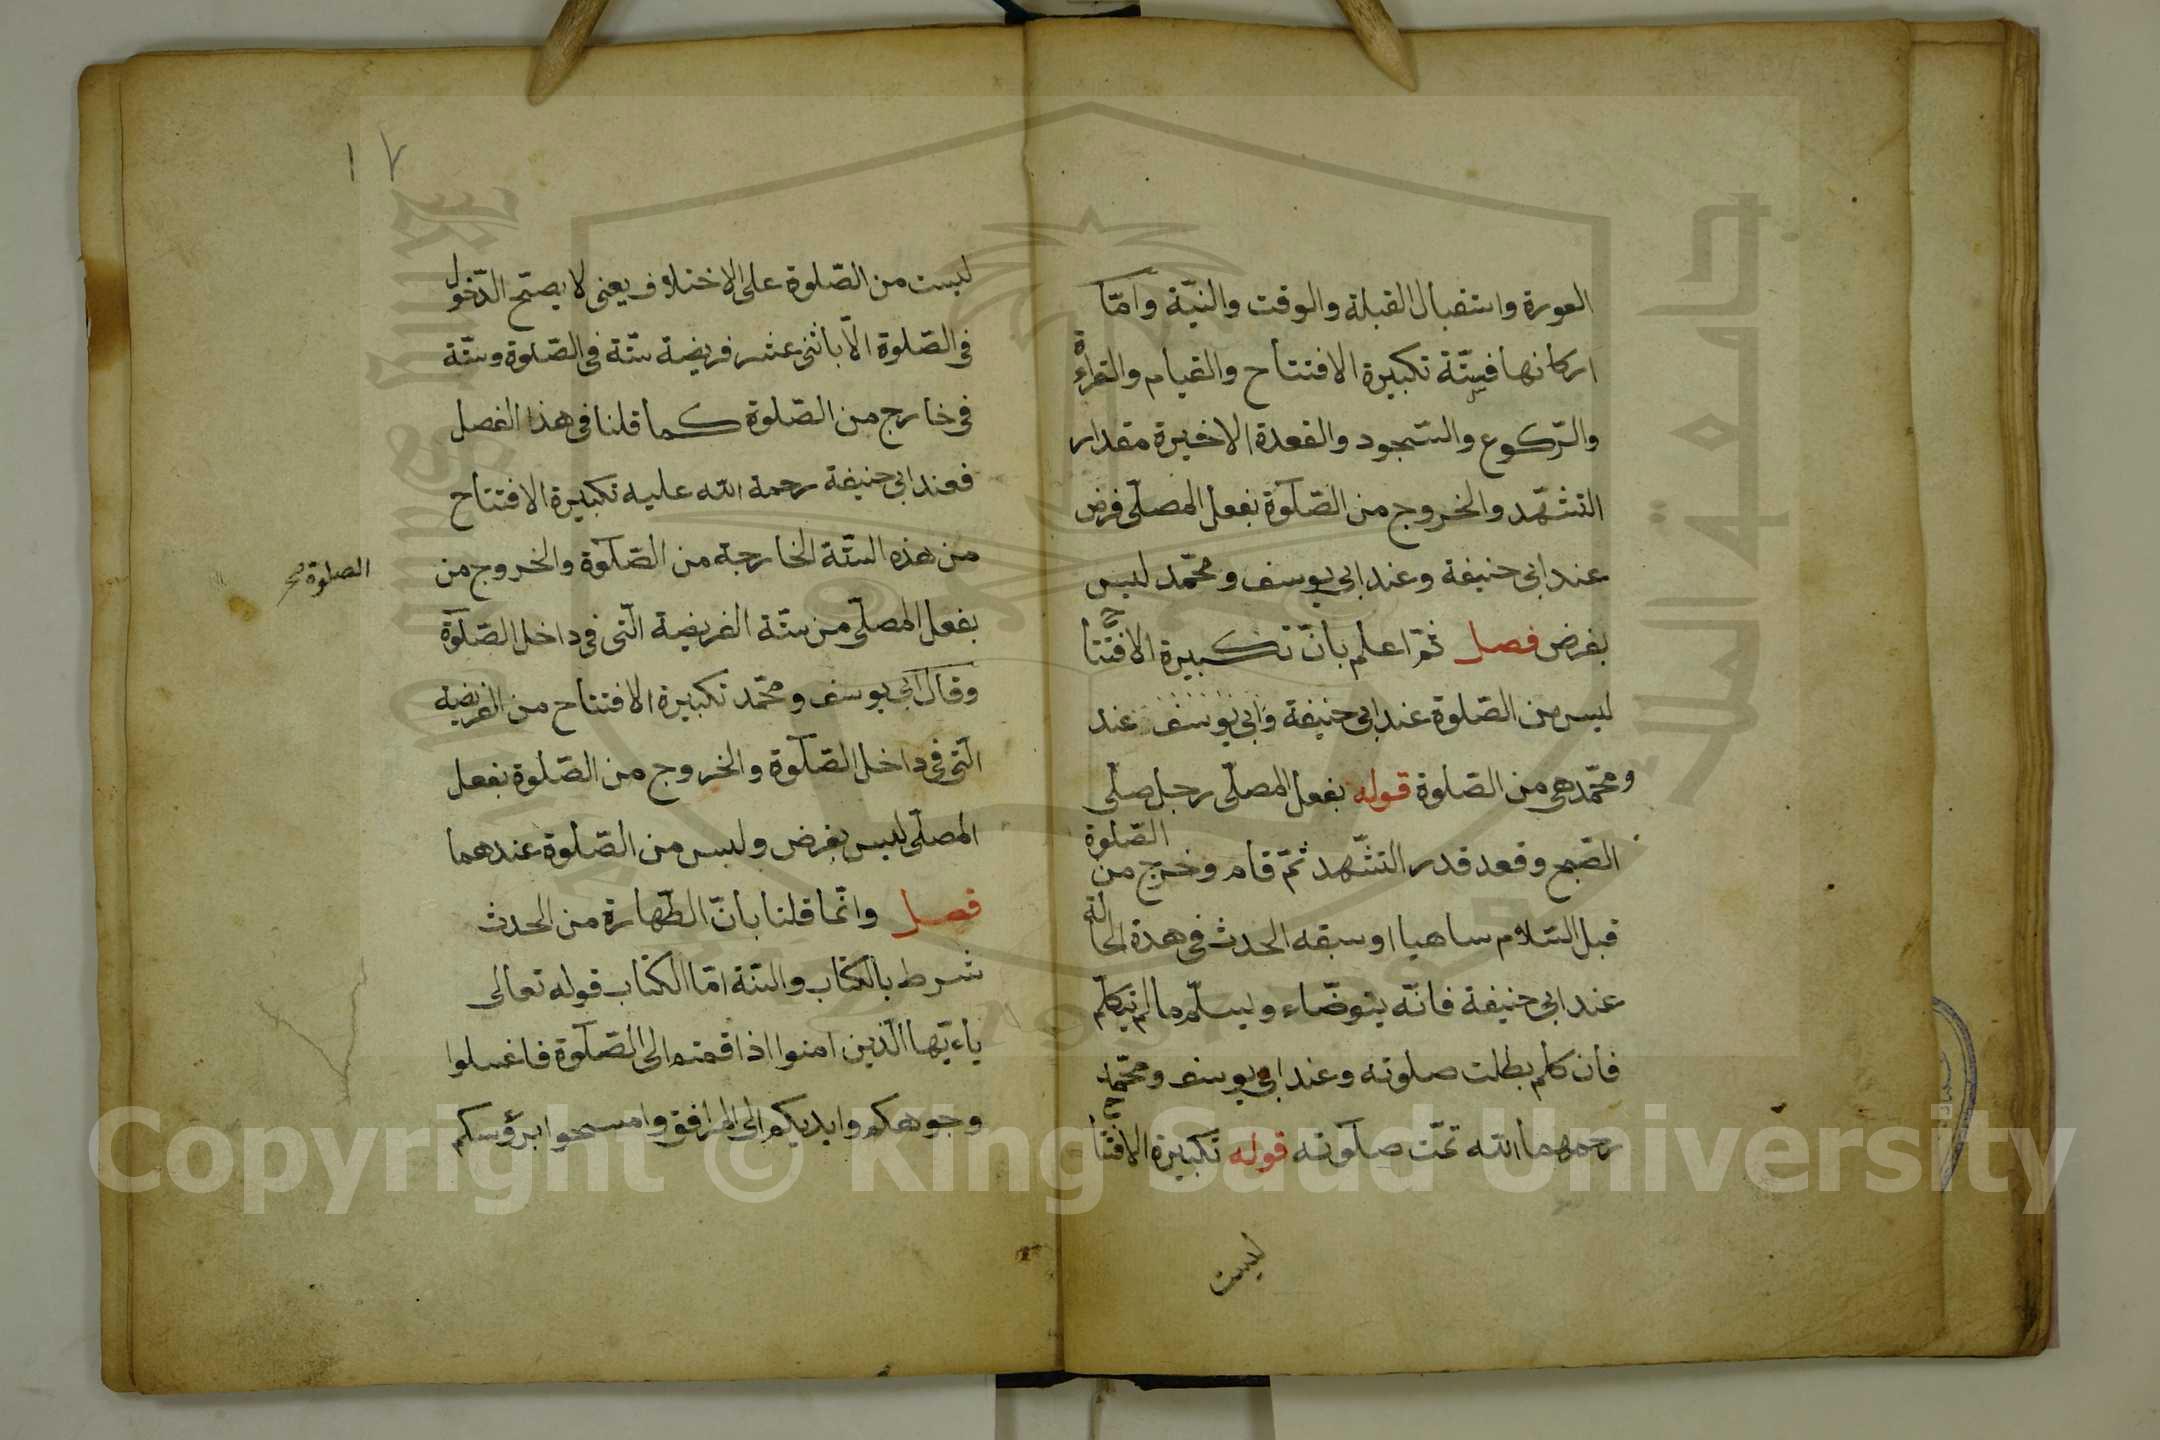 العورة واستقبال القبلة والوقت والنيّة وامّا
اركانها فستّة تكبيرة الافتتاح والقيام والقراءة
والرّكوع والسّجود والقعدة الاخيرة مقدار
التشهّد والخروج من الصّلوة بفعل المصلّى فرض
عند ابى حنيفة وعند ابى يوسف ومحمّد ليس
بفرض فصل ثمّ اعلم بانّ تكبيرة الافتتاح
ليس من الصّلوة عند ابى حنيفة وابى يوسف عند
ومحمّد هى من الصّلوة قوله بفعل المصلّى رجل صلّى
الصّبح وقعد قدر التشّهد ثمّ قام وخرج من الصّلوة
قبل السّلام ساهيا او سبقه الحدث فى هذة الحالة
عند ابى حنيفة فانّه يتوضّاء ويسلّم مالم يتكلّم
فان كلم بطلت صلوته وعند ابى يوسف ومحمّد
رحمهما الله تمّت صلوته قوله تكبيرة الافتتاح
ليست
١٧
ليست من الصّلوة على الاختلاف يعنى لا يصحّ الدّخول
فى الصّلوة الّا باثنى عشر فريضة ستّة فى الصّلوة وستّة
فى خارج من الصّلوة كما قلنا فى هذا الفصل
فعند ابى حنيفة رحمة الله عليه تكبيرة الافتتاح
من هذه الستّة الخارجة من الصّلوة والخروج من
الصلوة صح
بفعل المصلّى من ستّة الفريضة الّتى فى داخل الصّلوة
وقال ابى يوسف ومحمّد تكبيرة الافتتاح من الفريضة
الّتى فى داخل الصّلوة والخروج من الصّلوة بفعل
المصلّى ليس بفرض وليس من الصّلوة عندهما
فصل وانّما قلنا بانّ الطّهارة من الحدث
شرط بالكتاب والسنّة امّا الكتاب قوله تعالى
ياءيّها الّذين امنوا اذا قمتم الى الصّلوة فاغسلوا
وجوهكم وايديكم الى المرافق وامسحوا برؤسكم
جامعة الملك سعود
King Saud University
Copyright © King Saud University